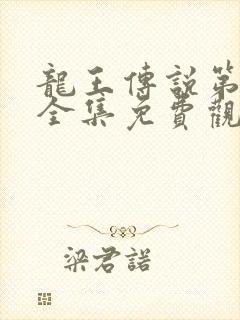 龍王傳説第
全集免費觀
梁君諾